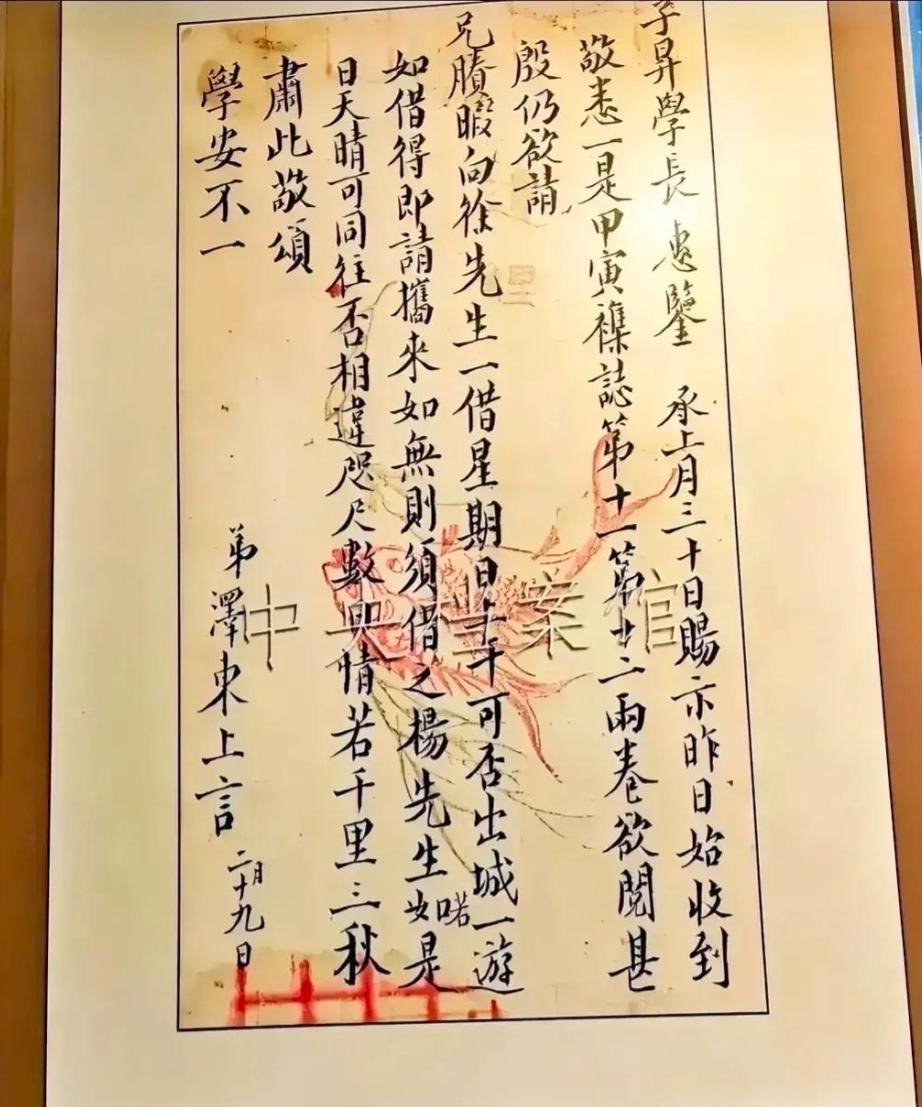 子昇學長 惠鑒 承上月三十日賜示昨日始收到
敬悉一是甲寅襍誌第十一第十二兩卷欲閱甚
殷仍欲請
兄賸暇向徐先生一借星期日上午可否出城一遊
如借得即請攜來如無則須借之楊先生如喏是
日天晴可同往否相違咫尺數日情若千里三秋
肅此敬頌
學安不一
弟澤東上言 二月十九日
中央檔案館